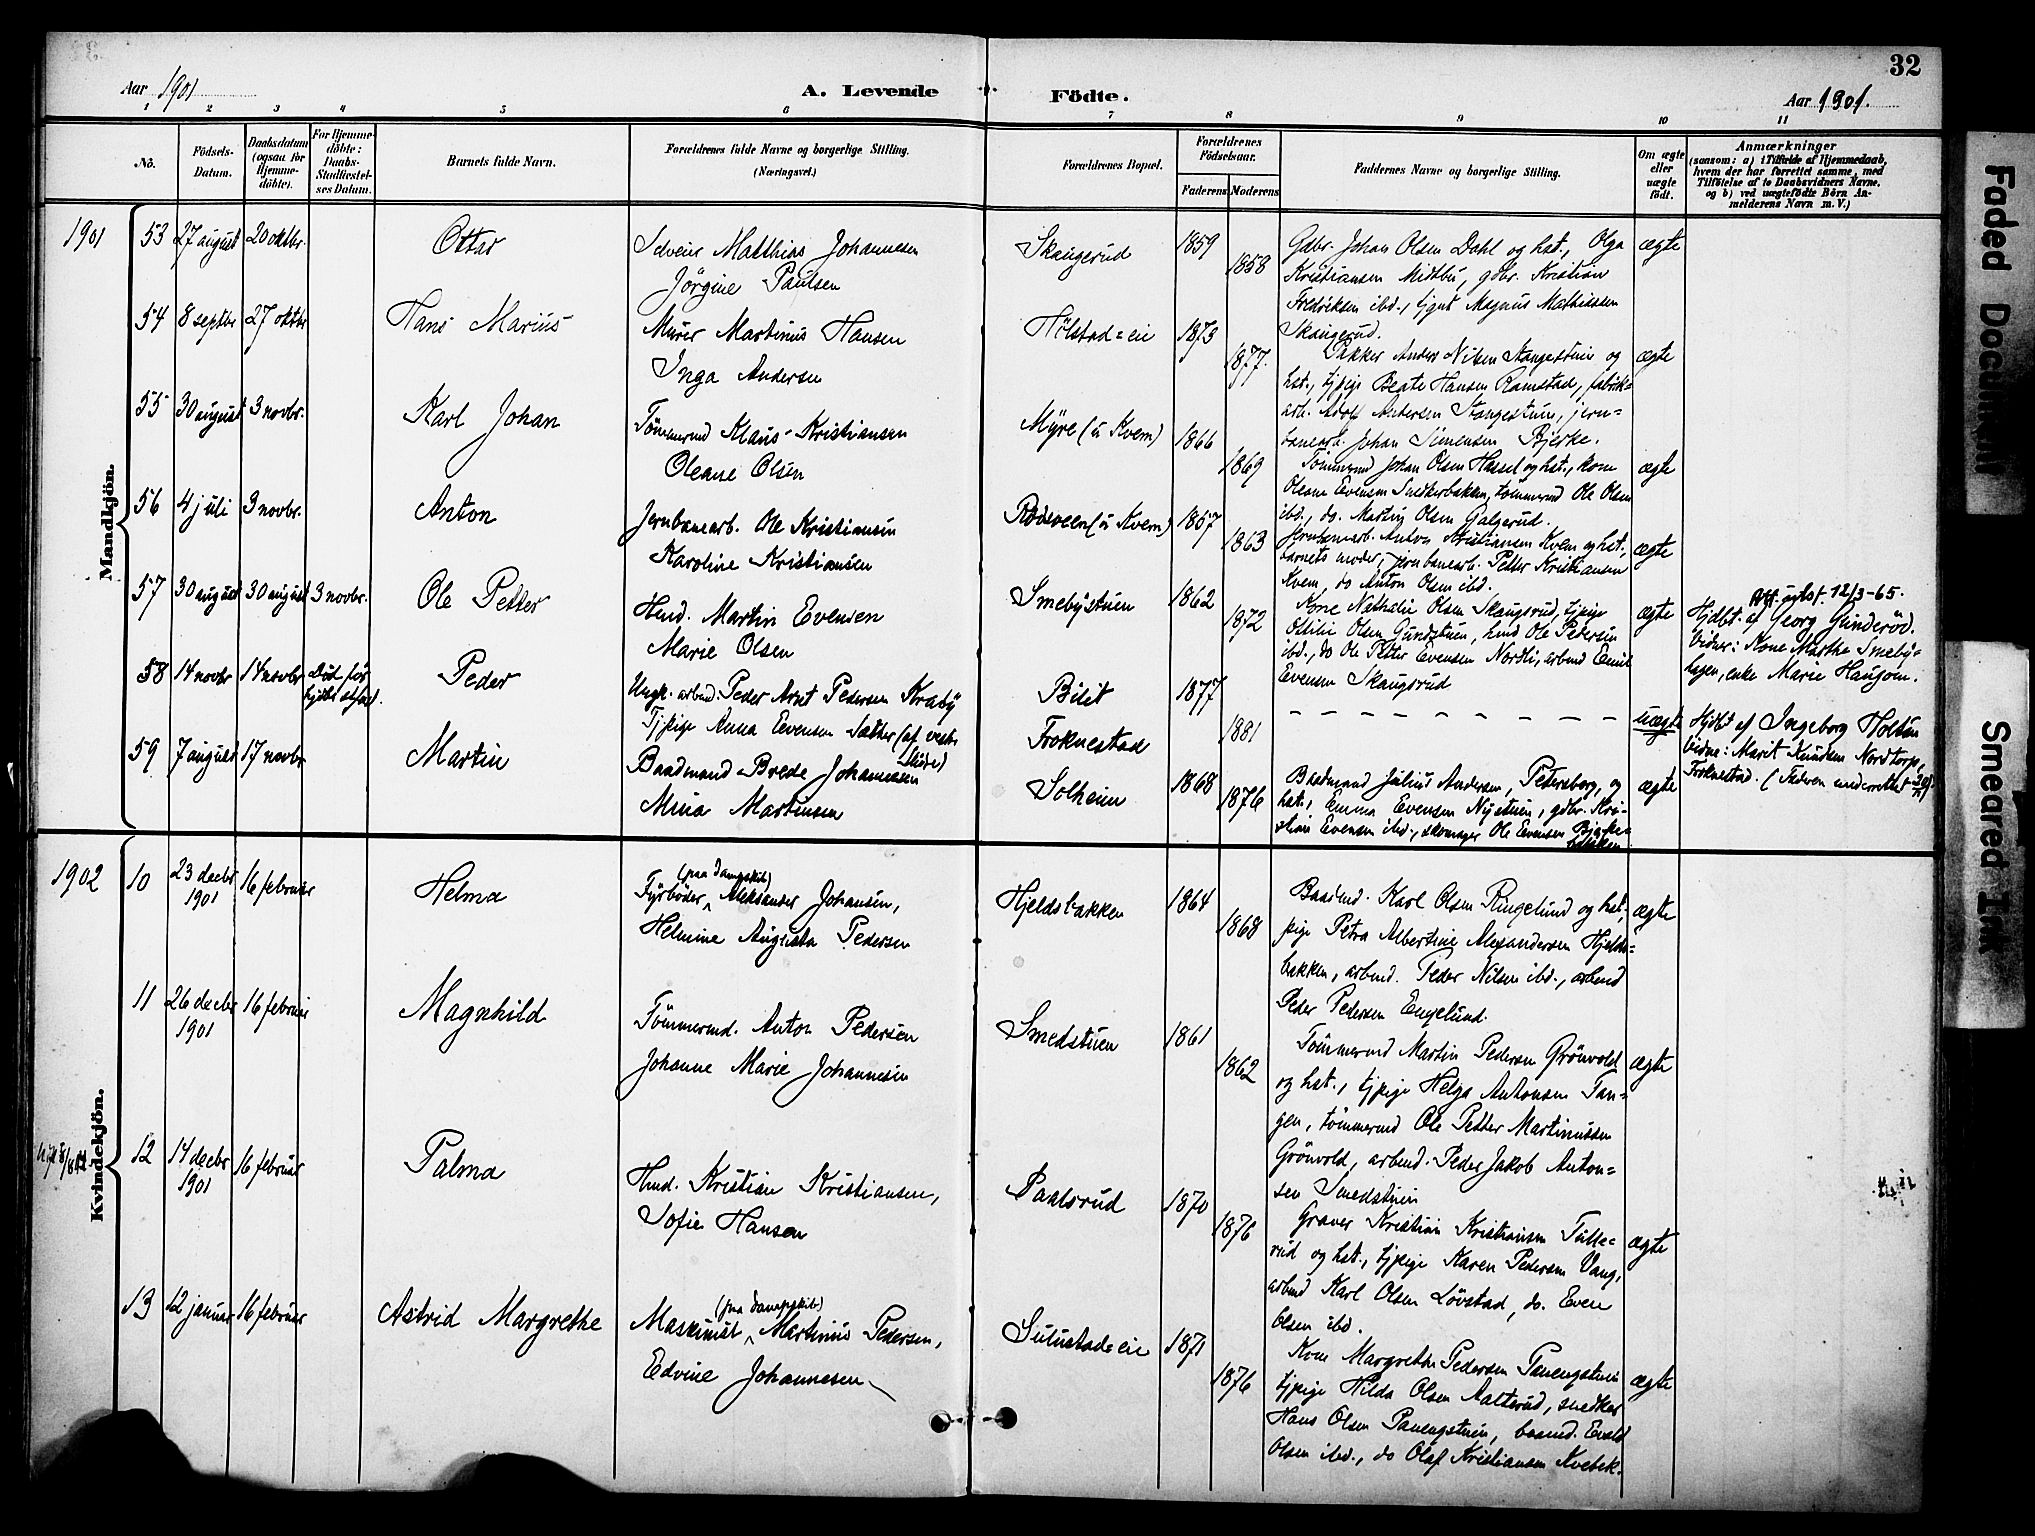 32
Aar 1901
A. Levende Födte.
Aar 1901.
1 2 3 4 5 6 7 8 9 10 11
No.
Födsels-Datum.
Daabsdatum (ogsaa for Hjemme-döbte).
For Hjemme-döbte: Daabs-Stadfæstel-ses Datum.
Barnets fulde Navn.
Forældrenes fulde Navne og borgerlige Stilling.
(Næringsvei.)
Forældrenes Bopæl.
Forældrenes Födselsaar.
Faderens Moderens
Faddernes Navne og borgerlige Stilling.
Om ægte eller uægte født.
Anmærkninger
(saasom: a) i Tilfælde af Hjemmedaab,
hvem der har forrettet samme, med
Tilföielse af to Daabsvidners Navne,
og b) ved uægtefödte Börn An-
melderens Navn m. V.)
Mandkjön.
1901 53 27 august 20 oktbr. Ottar
Selveier Matthias Johannesen
Jörgine Paulsen
Skaugerud 1859 1858
Gdbr. Johan Olsen Dahl og hst., Olga
Kristiansen Midtbu, gdbr. Kristian
Fredriksen ibd., tjgut Magnus Mathissen
Skaugerud.
ægte
54 8 septbr 27 oktbr Hans Marius
Murer Martinus Hansen
Inga Andersen
Hölstad=eie 1873 1877.
Pakker Anders Nilsen Stangestuen og
hst., tjpige Beate Hansen Ramstad, fabrik=
arb. Adolf Andersen Stangestuen, jern=
banearb. Johan Simensen Bjerke.
ægte
55 30 august 3 novbr. Karl Johan
Tömmermd Klaus Kristiansen
Oleane Olsen
Myre (u Kvem) 1866 1869
Tömmermd Johan Olsen Hassel og hst., kone
Oleane Evensen Snekkerbakken, tömmermd Ole Olsen
ibd., do. Martin Olsen Galgerud.
ægte
56 4 juli 3 novbr. Anton
Jernbanearb. Ole Kristiansen
Karoline Kristiansen
Rödsveen (u Kvem) 1867 1863
Jernbanearb. Anton Kristiansen Kvem og hst.,
barnets moder, jernbanearb. Petter Kristiansen
Kvem, do Anton Olsen ibd.
ægte
57 30 august 30 august 3 novbr. Ole Petter
Hmd. Martin Evensen
Marie Olsen
Smebystuen 1862 1872
Kone Nathalie Olsen Skaugsrud, tjpige
Ottilie Olsen Gundstuen, hmd Ole Pedersen
ibd., do Ole Petter Evensen Nordli, arbmd Emil
Evensen Skaugsrud
ægte
Att. utst. 12/3-65.
Hjdbt. af Georg Gunderöd.
Vidner: Kone Marthe Smeby=
hagen, enke Marie Haugom.
58 14 novbr 14 novbr Död för hjdbt stadf. Peder
Ungk. arbmd. Peder Arnt Pedersen Kraby
Tjpige Anna Evensen Sæther (af vestr
Bilit 1877
Froknestad 1881
uægte
Hjdbt af Ingeborg Holstun
Vidne: Marit Knudsen Nordtorp,
Froknestad. (Faderen underrettet
59 7 august 17 novbr Martin
Baadmand Brede Johannesen
Mina Martinsen
Solheim 1868 1876
Baadmand Julius Andersen, Petersborg, og
hst., Emma Evensen Nystuen, gdbr. Kri=
stian Evensen ibd., skomager Ole Evensen Bjerke=
bakken
ægte
Kvindekjön.
1902 10 23 decbr 1901 16 februar Helma
(paa Dampskib)
Fyrböder Aleksander Johansen,
Helmine Augusta Pedersen
Hjeldsbakken 1864 1868
Baadmd. Karl Olsen Ringelund og hst.,
pige Petra Albertine Alexandersen Hjelds=
bakken, arbmd. Peder Nilsen ibd., arbmd
Peder Pedersen Engelund.
ægte
11 26 decbr 1901 16 februar Magnhild
Tömmermd. Anton Pedersen
Johanne Marie Johannesen
Smedstuen 1861 1862
Tömmermd Martin Pedersen Grönvold
og hst., tjpige Helga Antonsen Tan=
gen, tömmermd Ole Petter Martinussen
Grönvold, arbmd. Peder Jakob Anton=
sen Smedstuen
ægte
12 14 decbr 1901 16 februar Palma
Hmd. Kristian Kristiansen,
Sofie Hansen
Paalsrud 1870 1876
Graver Kristian Kristiansen Tulle=
rud og hst., tjpige Karen Pedersen Vang,
arbmd Karl Olsen Lövstad, do. Even
Olsen ibd.
ægte
13 12 januar 16 februar Astrid Margrethe
(paa Dampskib)
Maskinist Martinus Pedersen,
Edvine Johannesen
Sulustad=eie 1871 1876
Kone Margrethe Pedersen Panengstuen
tjpige Hilda Olsen Aalterud, snedker
Hans Olsen Panengstuen, baamd. Evald
Olsen ibd., do Olaf Kristiansen Kvebek.
ægte
Faded Document
Smeared Ink